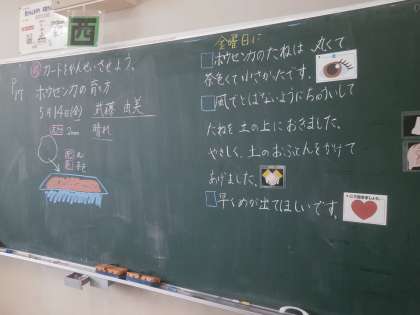 西
㋱カードをかんせいさせよう。
P.17
ホウセンカの育ち方
5月14日(金) 武藤 由美
2mm 晴れ
金曜日に
ホウセンカのたねは、丸くて
茶色くて小さかったです。
風でとばないようにちゅういして
たねを土の上におきました。
やさしく、土のおふとんをかけて
あげました。
早くめが出てほしいです。